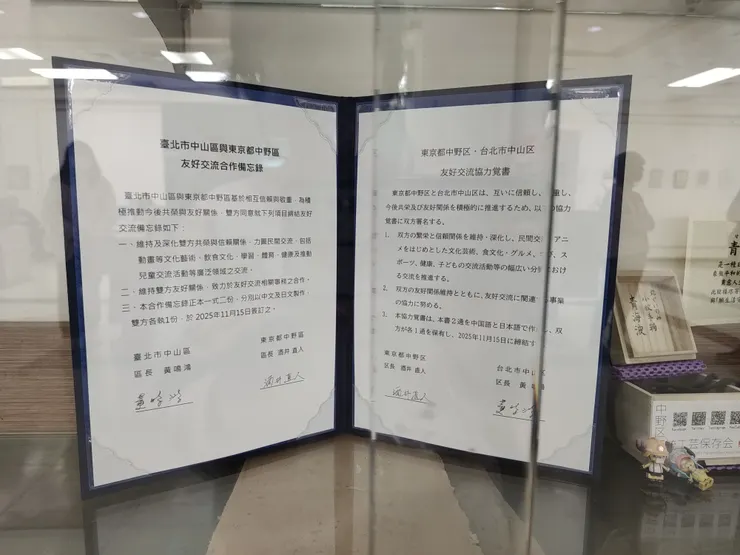 臺北市中山區與東京都中野區
友好交流合作備忘錄
臺北市中山區與東京都中野區基於相互信賴與敬重,為積
極推動今後共榮與友好關係,雙方同意就下列項目締結友好
交流備忘錄如下:
一、維持及深化雙方共榮與信賴關係,力圖民間交流,包括
動畫等文化藝術、飲食文化、學習、體育、健康及推動
兒童交流活動等廣泛領域之交流。
二、維持雙方友好關係,致力於友好交流相關事務之合作。
三、本合作備忘錄正本一式二份,分別以中文及日文製作,
雙方各執1份,於 2025年11月15日簽訂之。
臺北市中山區
區長 黃鳴鴻
東京都中野區
區長 酒井 直人
酒井直人
東京都中野区・台北市中山区
友好交流協力覚書
東京都中野区と台北市中山区は、互いに信頼し、重し、
今後共栄及び友好関係を積極的に推進するため、以協力
覚書に双方署名する。
1. 双方の繁栄と信頼関係を維持・深化し、民間交アニ
メをはじめとした文化芸術、食文化・グルメ、ス
ポーツ、健康、子どもの交流活動等の幅広い分おける
交流を推進する。
2. 双方の友好関係維持とともに、友好交流に関連事業
の協力に努める。
3. 本協力覚書は、本書2通を中国語と日本語で作、双
方が各1通を保有し、2025年11月15日に締結す
東京都中野区
区長 酒井 直人
酒井直人
台北市中山区
区長 黄
青海波
青
中野区
工芸保存会